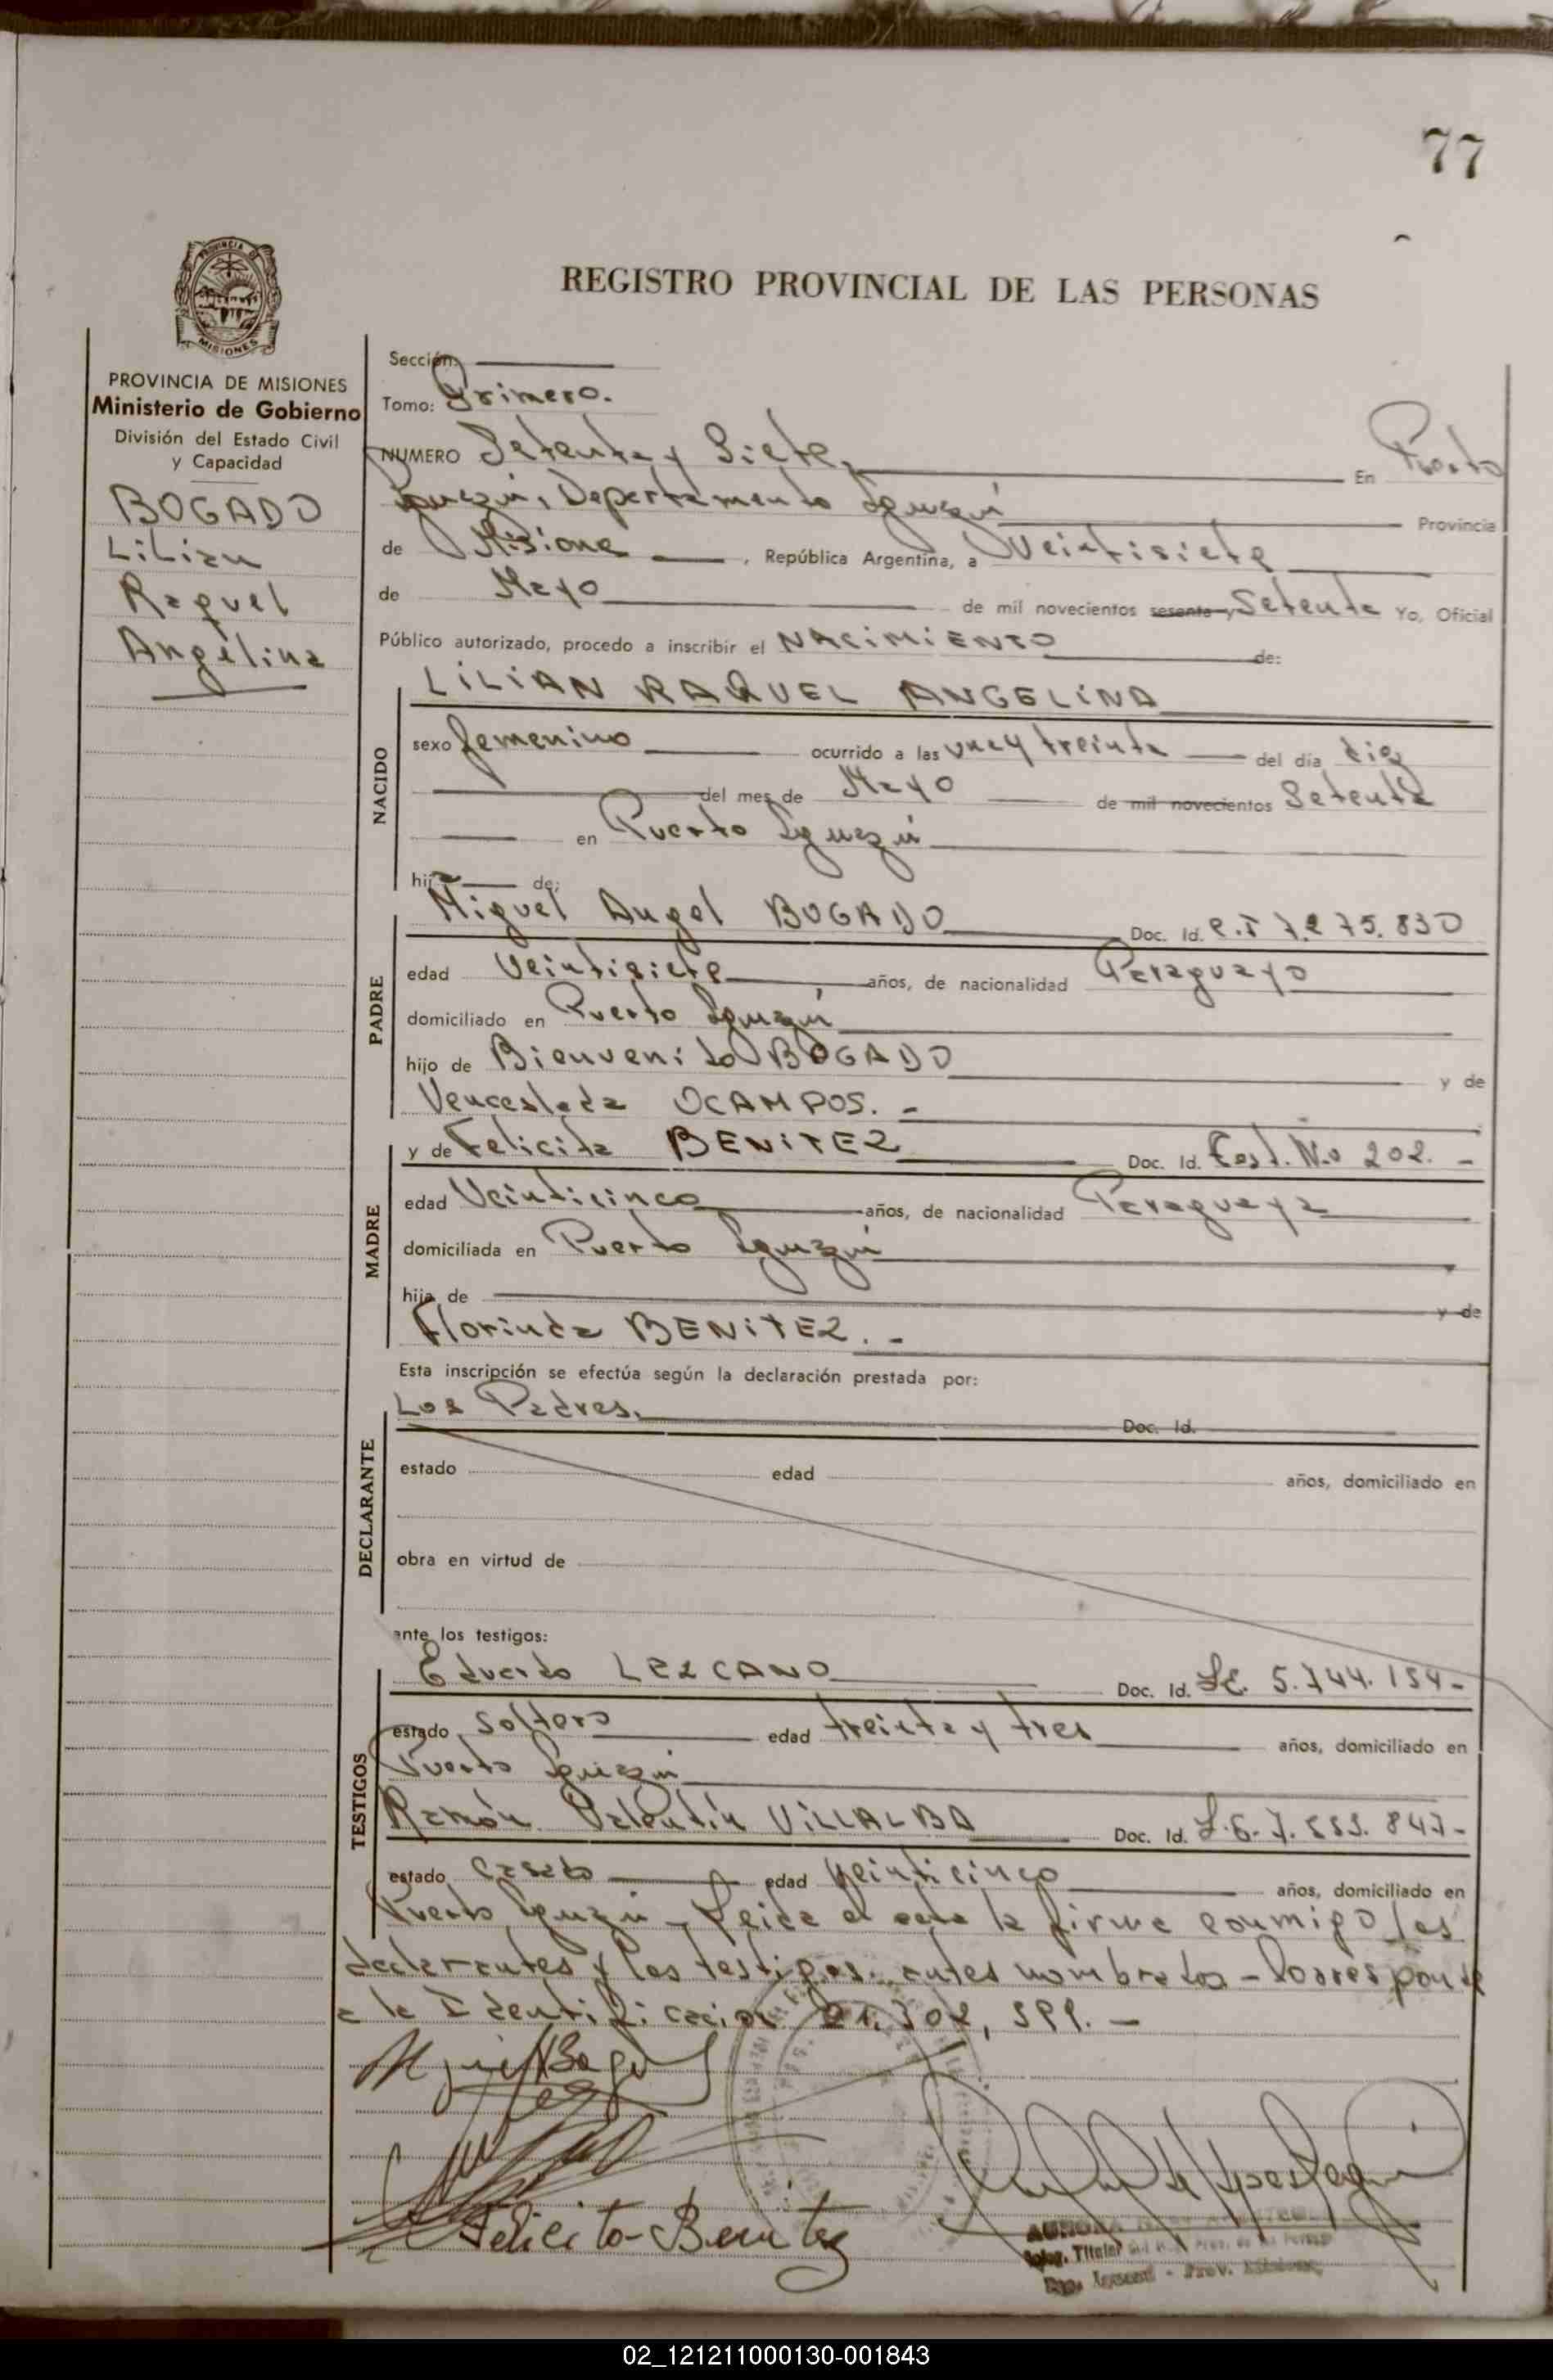 77
PROVINCIA DE
MISIONES
REGISTRO PROVINCIAL DE LAS PERSONAS
PROVINCIA DE MISIONES
Ministerio de Gobierno
División del Estado Civil
y Capacidad
BOGADO
Lilian
Raquel
Angélina
Sección:
Tomo: Primero.
NUMERO Setenta y Siete, En Puerto
Iguazú, Departamento Iguazú Provincia
de Misione , República Argentina, a Veintisiete
de Mayo de mil novecientos sesenta y Setenta Yo, Oficial
Público autorizado, procedo a inscribir el NACIMIENTO de:
NACIDO
LILIAN RAQUEL ANGELINA
sexo femenino ocurrido a las una y treinta del día diez
del mes de Mayo de mil novecientos Setenta
en Puerto Iguazú
hija de:
PADRE
Miguel Angel BOGADO Doc. Id. C.I 7.275.830
edad Veintisiete años, de nacionalidad Paraguayo
domiciliado en Puerto Iguazú
hijo de Bienvenido BOGADO y de
Venceslada OCAMPOS. -
MADRE
y de Felicita BENITEZ Doc. Id. Cert. No 202. -
edad Veinticinco años, de nacionalidad Paraguaya
domiciliada en Puerto Iguazú
hija de y de
Florinda BENITEZ. -
Esta inscripción se efectúa según la declaración prestada por:
DECLARANTE
Los Padres. Doc. Id.
estado edad años, domiciliado en
obra en virtud de
ante los testigos:
TESTIGOS
Eduardo LEZCANO Doc. Id. 5.744.154-
estado soltero edad treinta y tres años, domiciliado en
Puerto Iguazú
Ramón Valentín VILLALBA Doc. Id.
estado casado edad Veinticinco años, domiciliado en
Puerto Iguazú - Leida el acta la firma conmigo los
declarantes y los testigos antes nombrados - Corresponde
a la Identificación 21.302, 599. -
Felicita Benitez
Titular
02_121211000130-001843